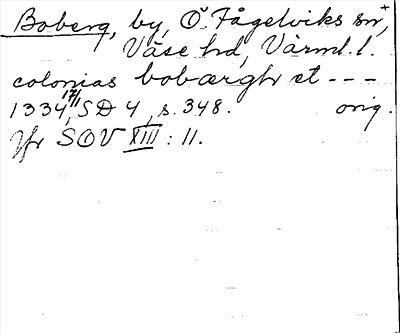 Boberg, by, Ö. Fågelviks sn,+
Väse hd, Värml. l.
colonias bobærghr et ---
1334 17/1, SD 4, s. 348. orig.
Jfr SOV XIII : 11.